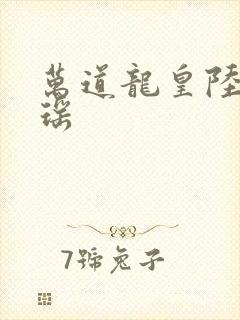 萬道龍皇陸
瑤
7號兔子